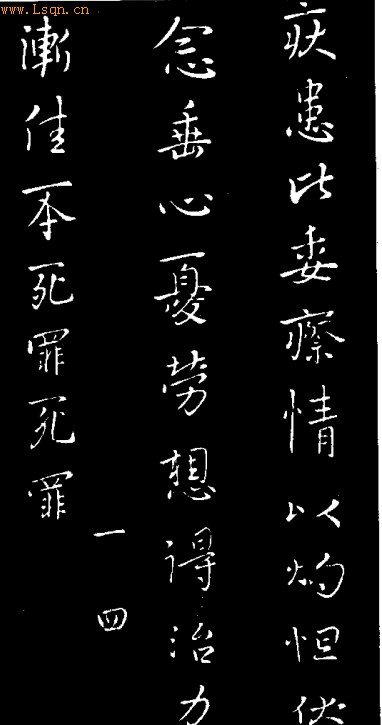 www.Lsqn.cn
疾患比委瘵情以灼怛伏
念垂心憂勞想得治力
漸佳不死罪死罪
一四